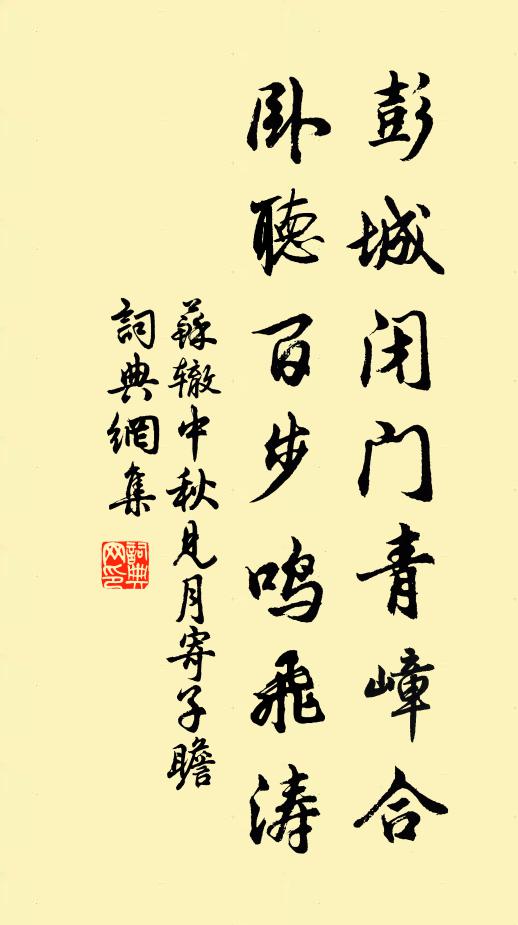 彭城闭门青嶂合
卧聽百步鸣飛涛
蘇辙中秋見月寄子瞻
詞典網集
詞典网印